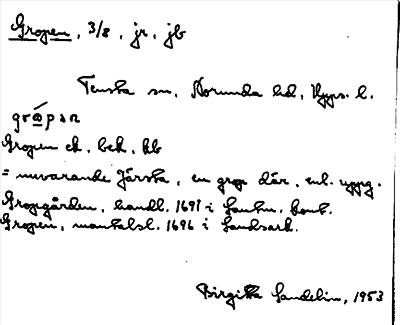 Gropen, 3/8, jr, jb
Tensta sn, Norunda hd, Upps. l.
grøpan
Gropen ek. bek. kb
= nuvarande Järsta, en grop där, enl. uppg.
Gropgården, handl. 1691 i Lantm. kont.
Gropen, mantalsl. 1696 i Landsark.
Birgitta Sandelin, 1953